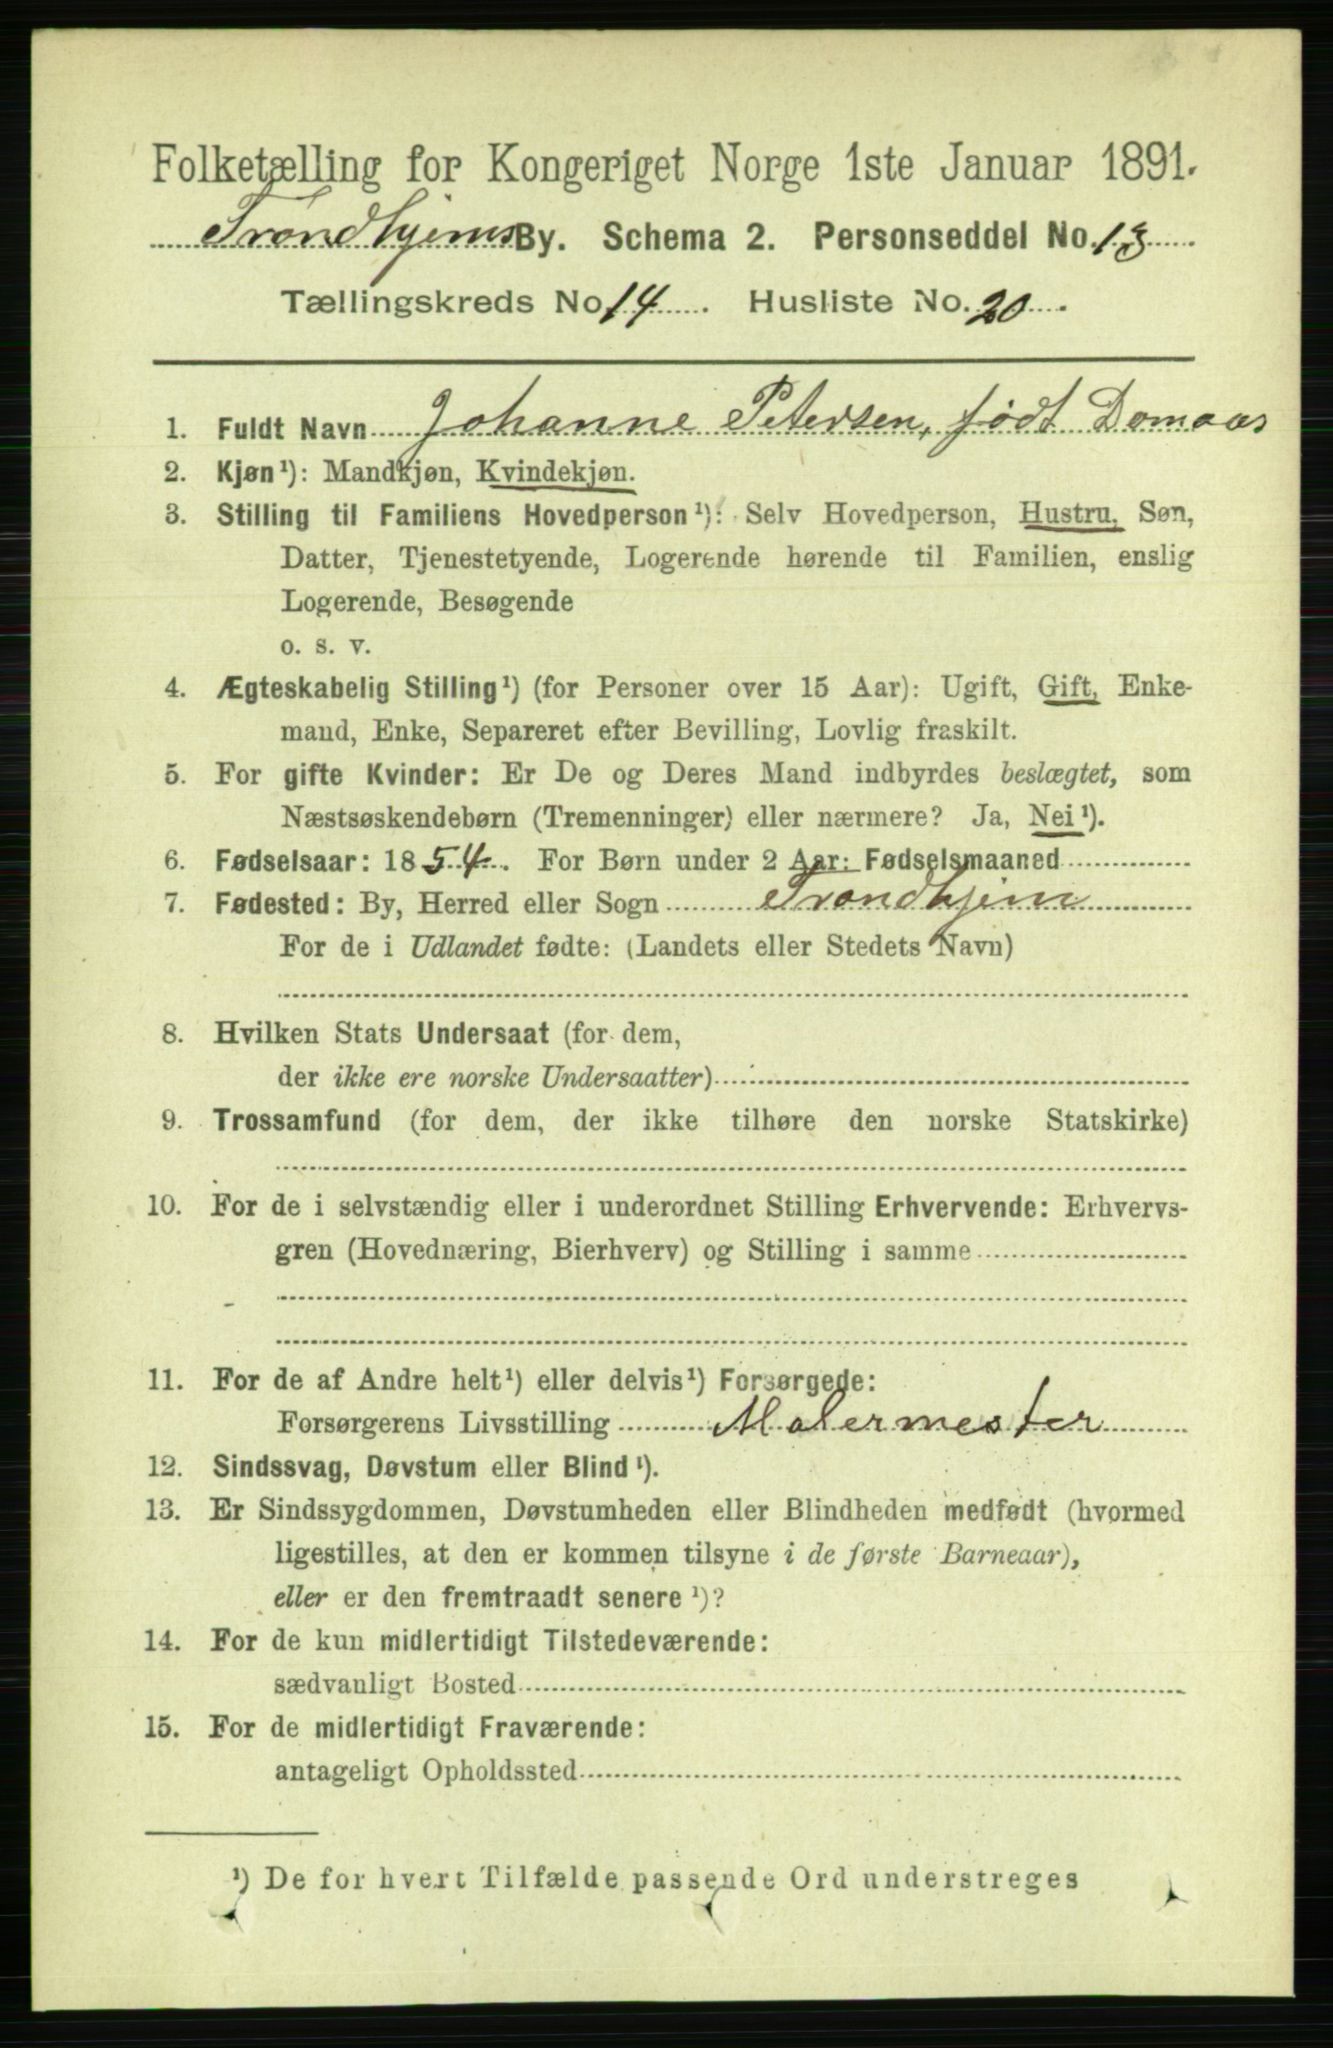 Folketælling for Kongeriget Norge 1ste Januar 1891.
Trondhjems By. Schema 2. Personseddel No. 13
Tællingskreds No 14. Husliste No. 20.
1. Fuldt Navn Johanne Petersen, født Domaas
2. Kjøn¹): Mandkjøn, Kvindekjøn.
3. Stilling til Familiens Hovedperson¹): Selv Hovedperson, Hustru, Søn,
Datter, Tjenestetyende, Logerende hørende til Familien, enslig
Logerende, Besøgende
o. s. v.
4. Ægteskabelig Stilling¹) (for Personer over 15 Aar): Ugift, Gift, Enke-
mand, Enke, Separeret efter Bevilling, Lovlig fraskilt.
5. For gifte Kvinder: Er De og Deres Mand indbyrdes beslægtet, som
Næstsøskendebørn (Tremenninger) eller nærmere? Ja, Nei¹).
6. Fødselsaar: 1854. For Børn under 2 Aar: Fødselsmaaned
7. Fødested: By, Herred eller Sogn Trondhjem
For de i Udlandet fødte: (Landets eller Stedets Navn)
8. Hvilken Stats Undersaat (for dem,
der ikke ere norske Undersaatter)
9. Trossamfund (for dem, der ikke tilhøre den norske Statskirke)
10. For de i selvstændig eller i underordnet Stilling Erhvervende: Erhvervs-
gren (Hovednæring, Bierhverv) og Stilling i samme
11. For de af Andre helt¹) eller delvis¹) Forsørgede:
Forsørgerens Livsstilling Malermester
12. Sindssvag, Døvstum eller Blind¹).
13. Er Sindssygdommen, Døvstumheden eller Blindheden medfødt (hvormed
ligestilles, at den er kommen tilsyne i de første Barneaar),
eller er den fremtraadt senere¹)?
14. For de kun midlertidigt Tilstedeværende:
sædvanligt Bosted
15. For de midlertidigt Fraværende:
antageligt Opholdssted
¹) De for hvert Tilfælde passende Ord understreges